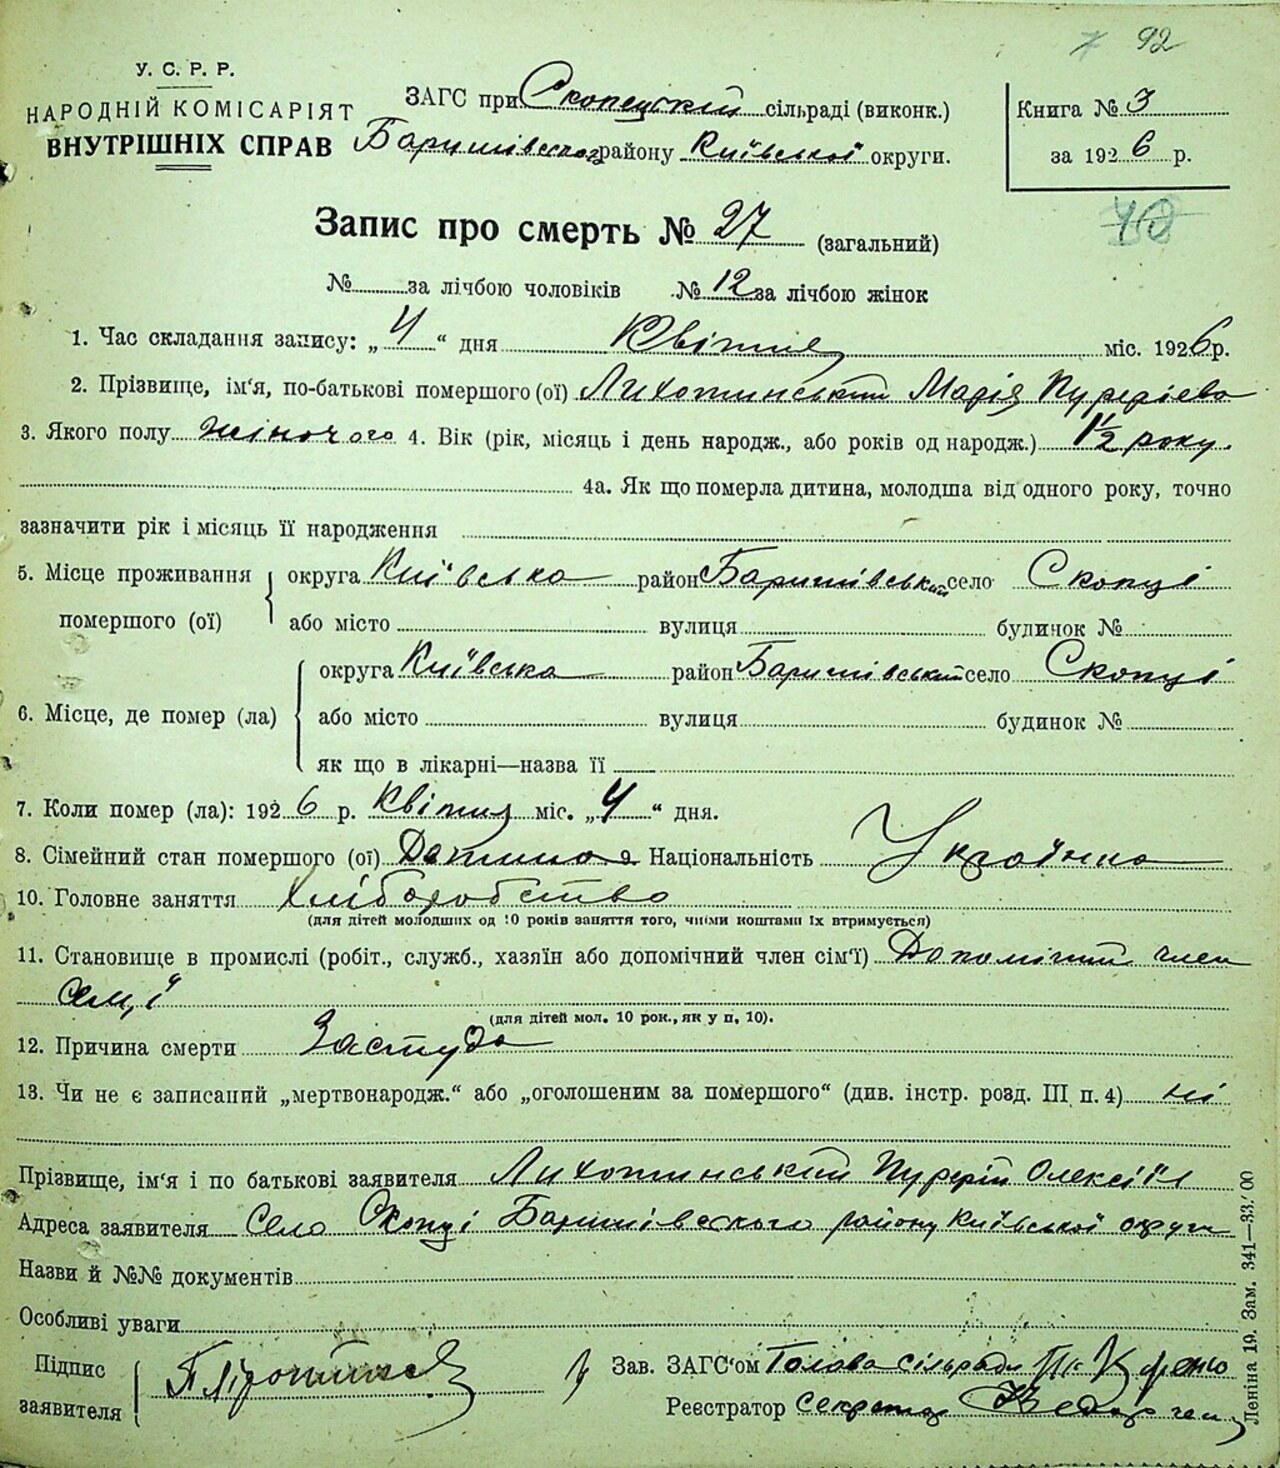 92
У. С. Р. Р.
НАРОДНІЙ КОМІСАРІЯТ
ВНУТРІШНІХ СПРАВ
ЗАГС при Скопецькій сільраді (виконк.)
Баришівського району Київської округи.
Книга № 3
за 1926 р.
Запис про смерть № 27 (загальний)
№ за лічбою чоловіків № 12 за лічбою жінок
1. Час складання запису: „4“ дня Квітня міс. 1926 р.
2. Прізвище, ім'я, по-батькові помершого (ої) Лихотинський Марія
3. Якого полу жіночого 4. Вік (рік, місяць і день народж., або років од народж.) 1½ року.
4а. Як що померла дитина, молодша від одного року, точно
зазначити рік і місяць її народження
5. Місце проживання помершого (ої) округа Київська район Баришівський село Скопці
або місто вулиця будинок №
6. Місце, де помер (ла) округа Київська район Баришівський село Скопці
або місто вулиця будинок №
як що в лікарні—назва її
7. Коли помер (ла): 1926 р. Квітня міс. „4“ дня.
8. Сімейний стан помершого (ої) Дитина 9. Національність Українка
10. Головне заняття Хліборобство
(для дітей молодших од 10 років заняття того, чиїми коштами їх втримується)
11. Становище в промислі (робіт., служб., хазяїн або допомічний член сім'ї) Допомічний член
семʼї
(для дітей мол. 10 рок., як у п, 10).
12. Причина смерти Застуда
13. Чи не є записаний „мертвонародж.“ або „оголошеним за помершого“ (див. інстр. розд. III п. 4) ні
Прізвище, ім'я і по батькові заявителя Лихотинський Олексіїв
Адреса заявителя Село Скопці Баришівського району Київської округи
Назви й №№ документів
Особливі уваги
Підпис заявителя
Зав. ЗАГС'ом Голова сільради
Реєстратор Секретар
Леніна 19. Зам. 341—33.'00